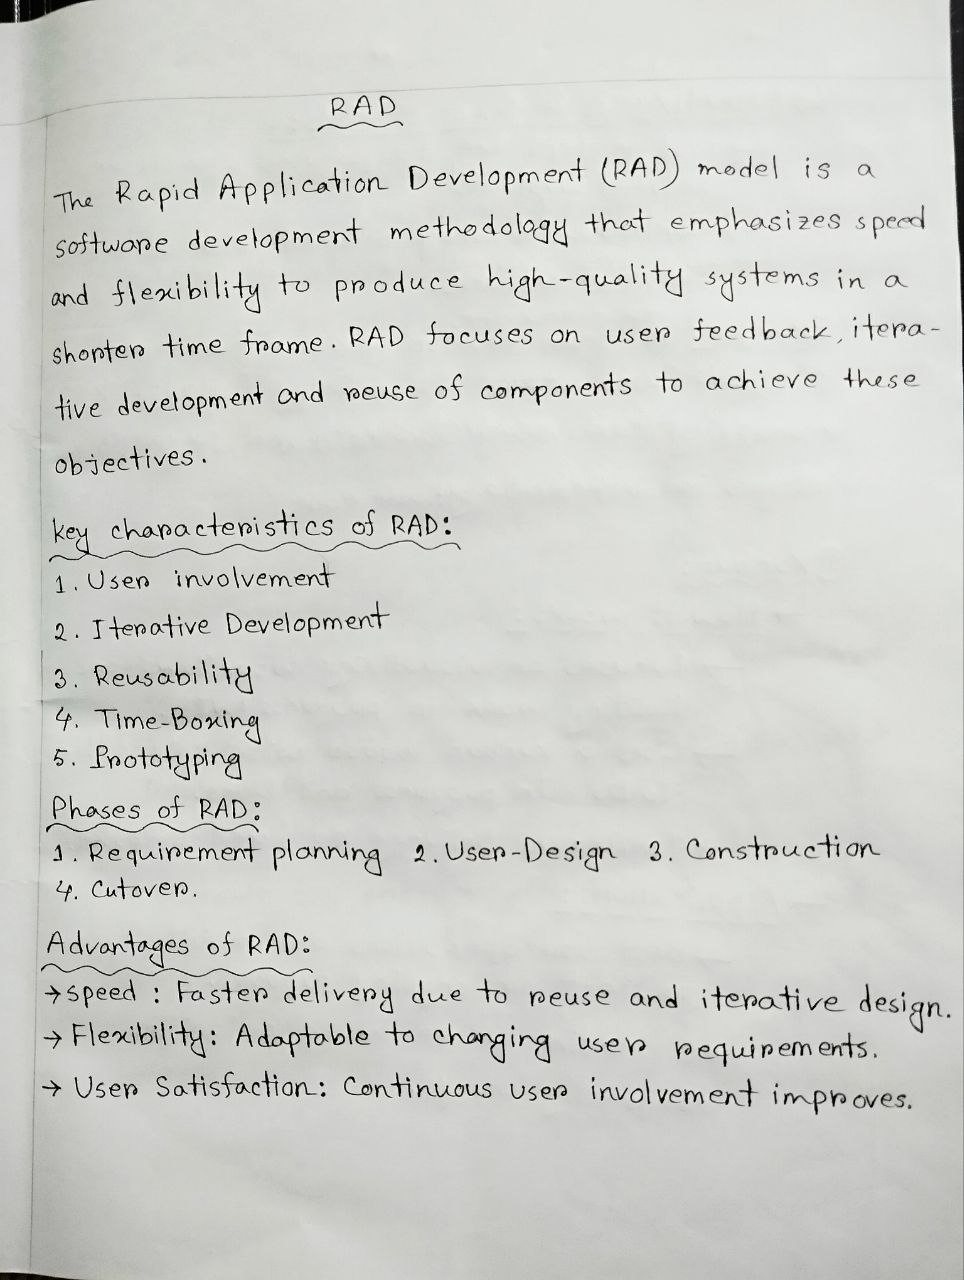 RAD
The Rapid Application Development (RAD) model is a
software development methodology that emphasizes speed
and flexibility to produce high-quality systems in a
shorter time frame. RAD focuses on user feedback, itera-
tive development and reuse of components to achieve these
objectives.
key characteristics of RAD:
1. User involvement
2. Iterative Development
3. Reusability
4. Time-Boxing
5. Prototyping
Phases of RAD:
1. Requirement planning 2. User-Design 3. Construction
4. Cutover.
Advantages of RAD:
→ speed : Faster delivery due to reuse and iterative design.
→ Flexibility: Adaptable to changing user requirements.
→ User Satisfaction: Continuous user involvement improves.